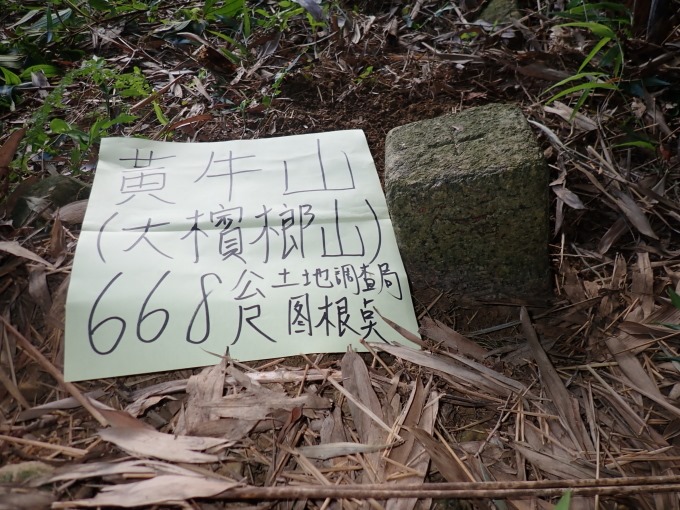 黃牛山
(大檳榔山)
668公尺 土地調查局
图根点